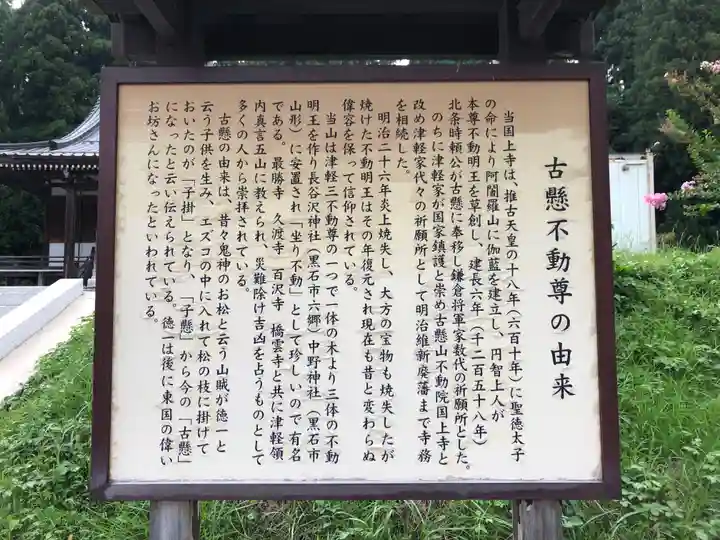 古懸不動尊の由来
当国上寺は、推古天皇の十八年(六百十年)に聖徳太子
の命により阿闍羅山に伽藍を建立し、円智上人が
本尊不動明王を草創し、建長六年(千二百五十八年)
北条時頼公が古懸に奉移し鎌倉将軍家数代の祈願所とした。
のちに津軽家が国家鎮護と崇め古懸山不動院国上寺と
改め津軽家代々の祈願所として明治維新廃藩まで寺務
を相続した。
明治二十六年炎上焼失し、大方の宝物も焼失したが
焼けた不動明王はその年復元され現在も昔と変わらぬ
偉容を保って信仰されている。
当山は津軽三不動尊の一つで一体の木より三体の不動
明王を作り長谷沢神社(黒石市六郷)中野神社(黒石市
山形)に安置され「坐り不動」として珍しいので有名
である。最勝寺 久渡寺 百沢寺 橋雲寺と共に津軽領
内真言五山に教えられ、災難除け吉凶を占うものとして
多くの人から崇拝されている。
古懸の由来は、昔々鬼神のお松と云う山賊が徳一と
云う子供を生み、エズコの中に入れて松の枝に掛けて
おいたのが「子掛」となり、「子懸」から今の「古懸」
になったと云い伝えられている。徳一は後に東国の偉い
お坊さんになったといわれている。